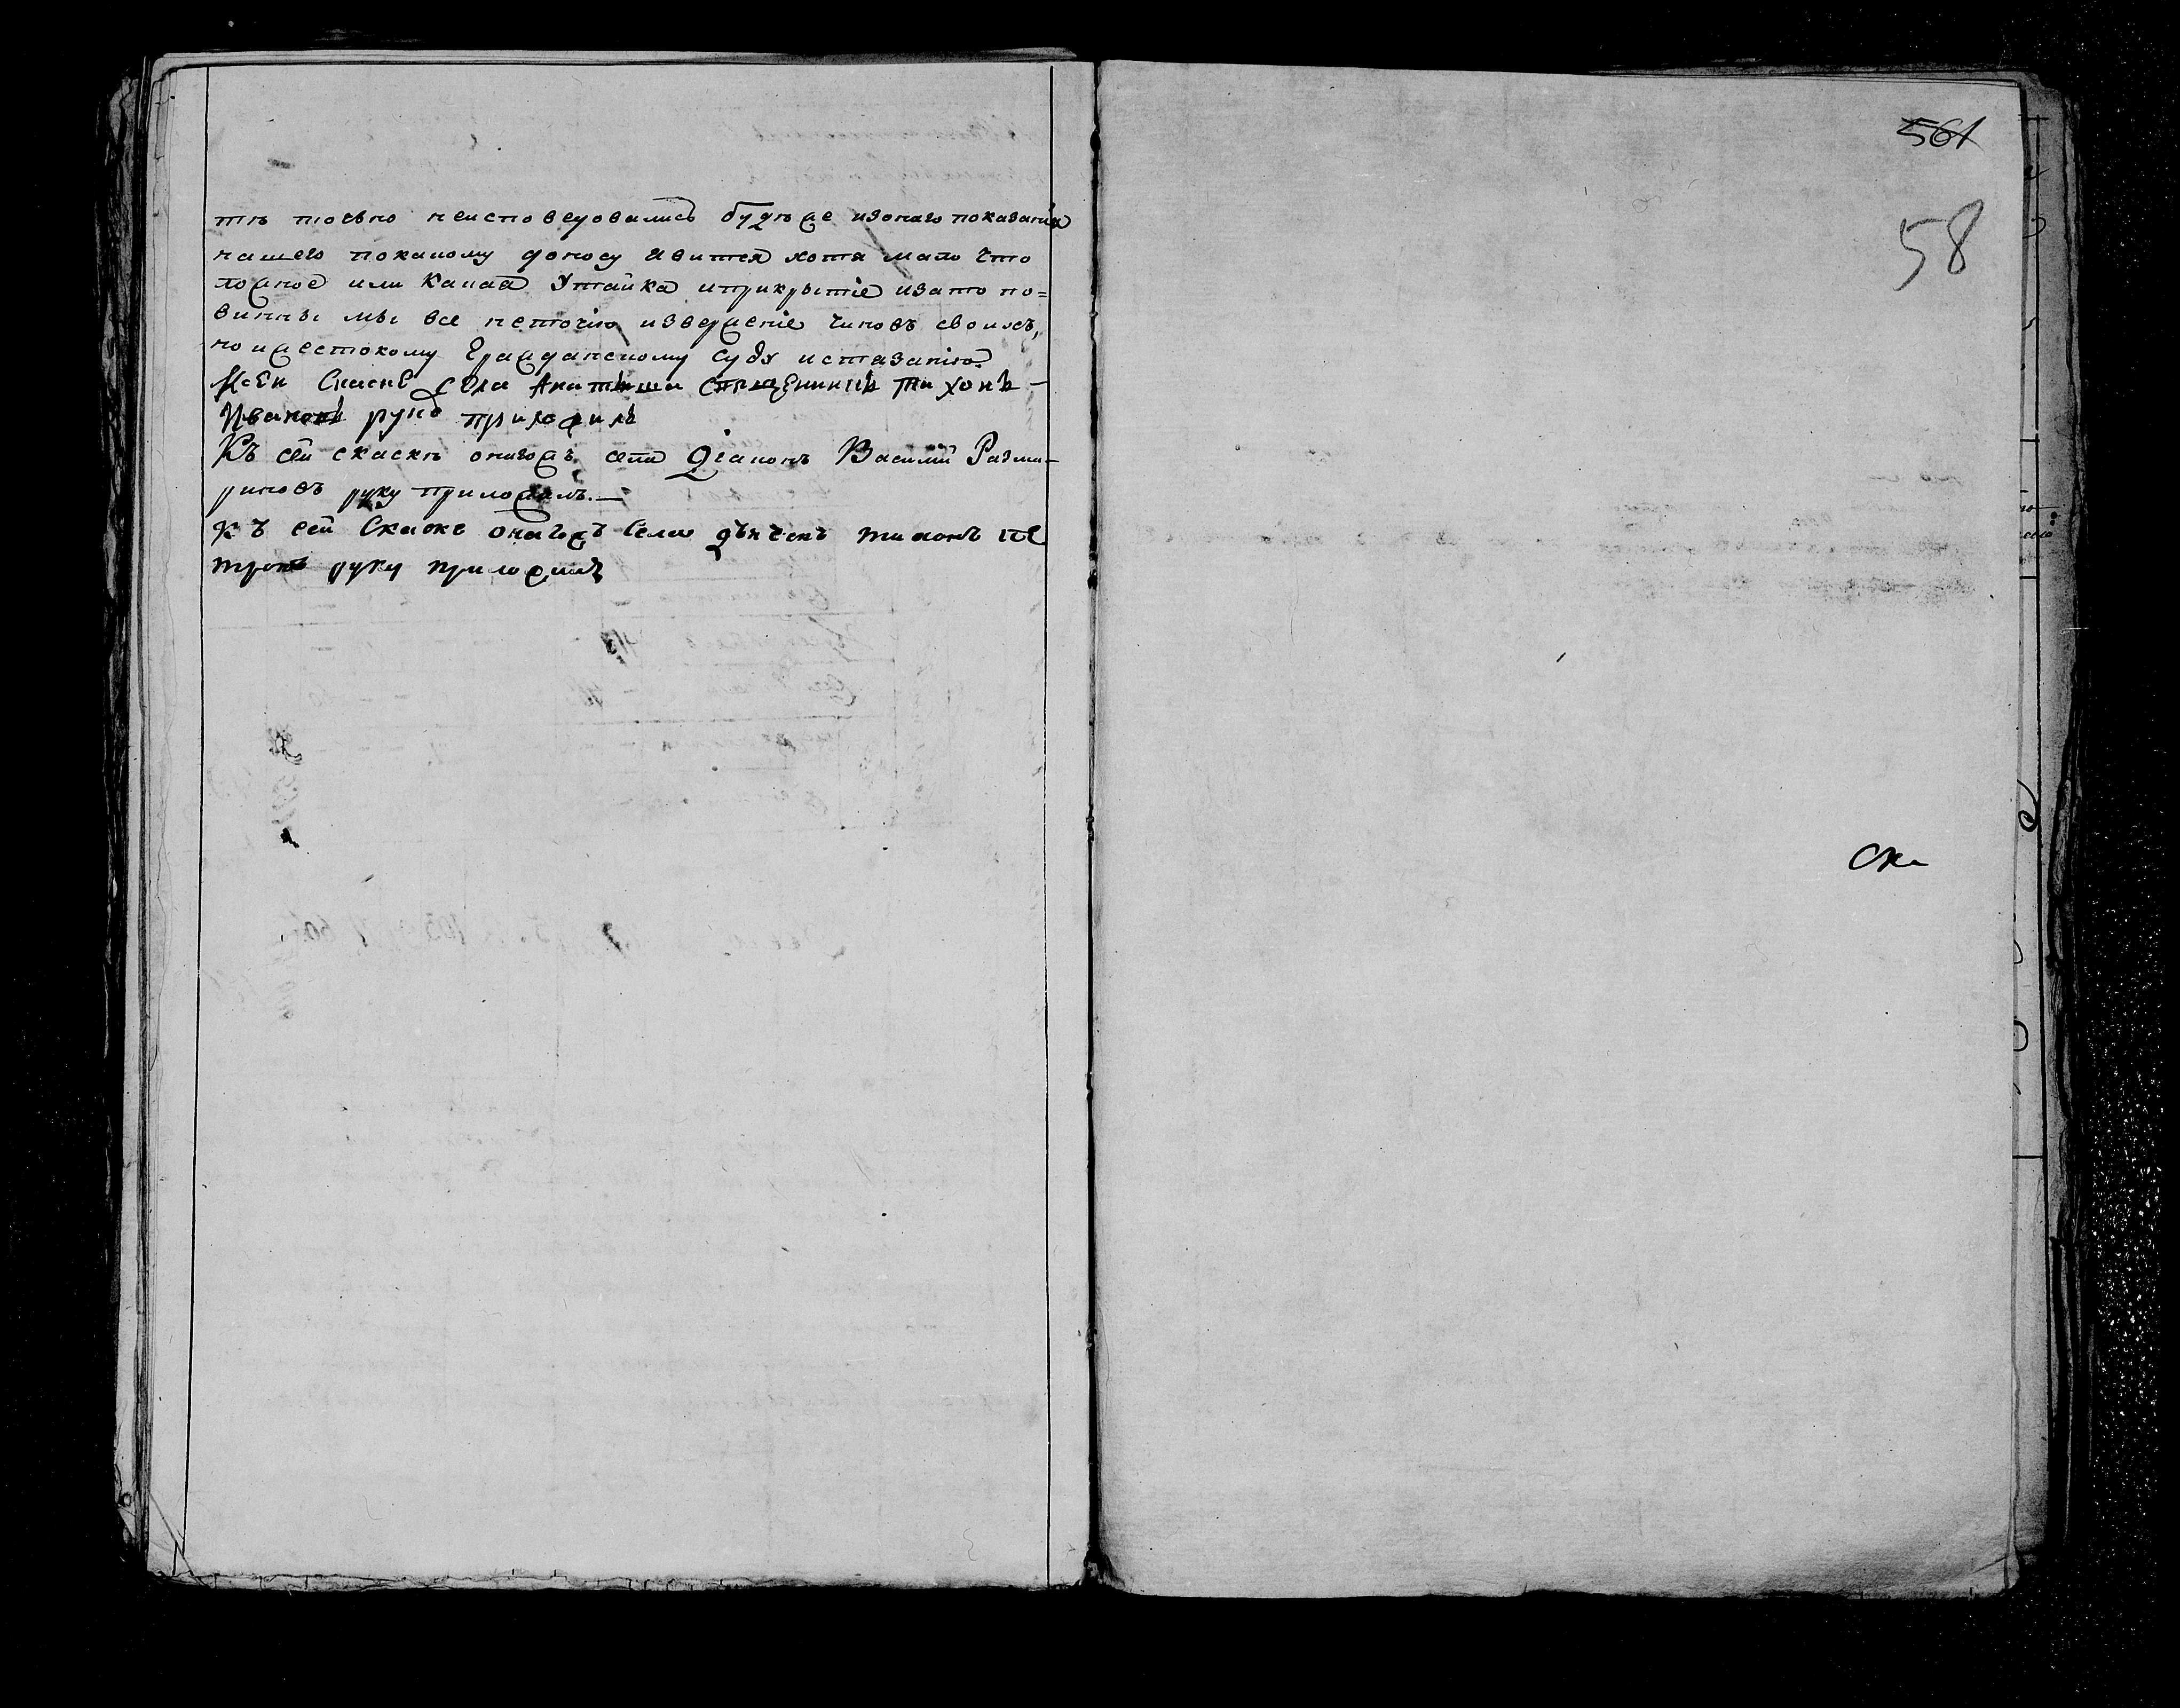 тѣ токмо неисповедовались будѣже изонаго показания
нашего покакому доносу явится хотя мало что
ложное или какая Утайка иприкрытіе изато по=
винны мы все неточію извержение чиновъ своихъ,
но ижестокому Гражданскому суду истязанію
Ксеи Скаске села священникъ Тихонъ
Ивановъ руку приложилъ
Къ сей скаскѣ оногожъ села Діаконъ Василий Разми-
риновъ руку приложилъ.—
Къ сей Скаске оногожъ Села дьячекъ тихонъ пе
тровъ руку приложилъ
561
58
Ска